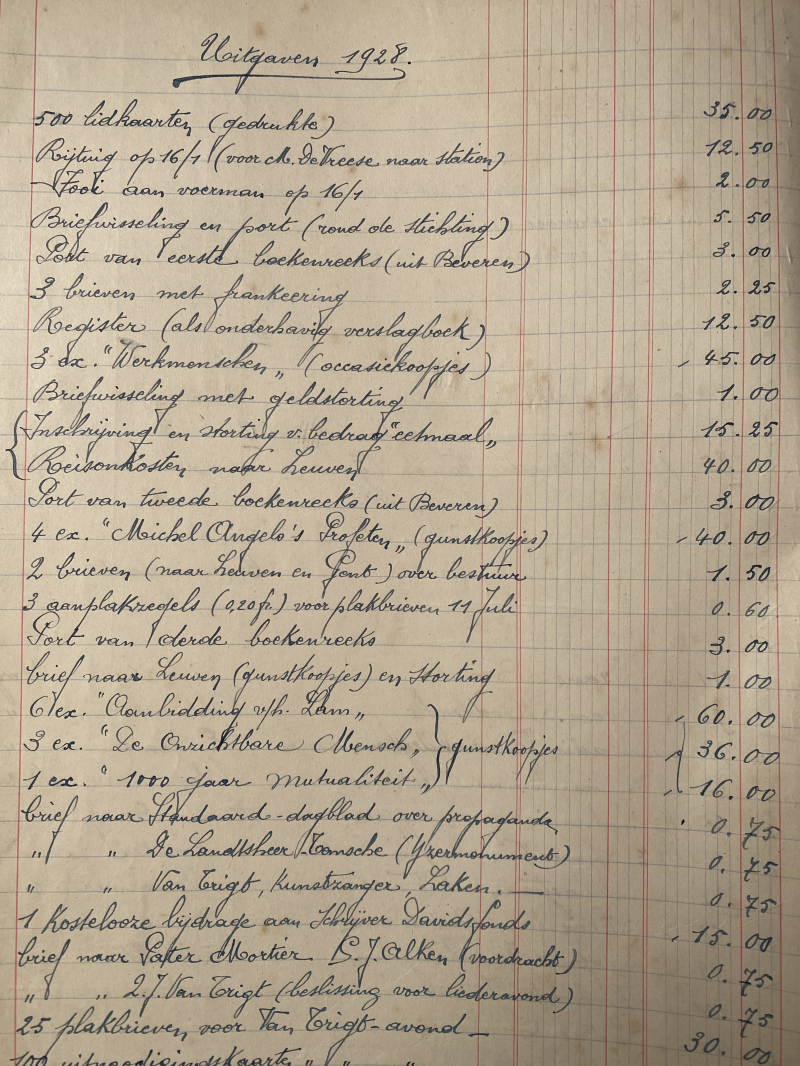 Uitgaven 1928.
500 lidkaarten (gedrukte) 35.00
Rijtuig op 16/1 (voor M. De Vreese naar station) 12.50
Fooi aan voerman op 16/1 2.00
Briefwisseling en port (rond de stichting) 5.50
Port van eerste boekenreeks (uit Beveren) 3.00
3 brieven met frankeering 2.25
Register (als onderhavig verslagboek) 12.50
3 ex. "Werkmenschen" (occasiekoopjes) 45.00
Briefwisseling met geldstorting 1.00
Inschrijving en storting v. bedrag "eetmaal" 15.25
Reisonkosten naar Leuven 40.00
Port van tweede boekenreeks (uit Beveren) 3.00
4 ex. "Michel Angelo's Profeten" (gunstkoopjes) 40.00
2 brieven (naar Leuven en Gent) over bestuur 1.50
3 aanplakzegels (0,20 fr.) voor plakbrieven 11 Juli 0.60
Port van derde boekenreeks 3.00
brief naar Leuven (gunstkoopjes) en storting 1.00
6 ex. "Aanbidding v/h. Lam" 60.00
3 ex. "De Onzichtbare Mensch" gunstkoopjes 36.00
1 ex. "1000 jaar Mutualiteit" 16.00
brief naar Standaard-dagblad over propaganda 0.75
" " De Landtsheer-Temsche (Yzermonument) 0.75
" " Van Trigt, Kunstzanger, Laken. — 0.75
1 Kostelooze bijdrage aan Schrijver Davidsfonds 15.00
brief naar Pater Mortier S.J. Alken (voordracht) 0.75
" " Z.J. Van Trigt (beslissing voor liederavond) 0.75
25 plakbrieven voor Van Trigt-avond — 30.00
100 uitnoodigingskaarten " " "